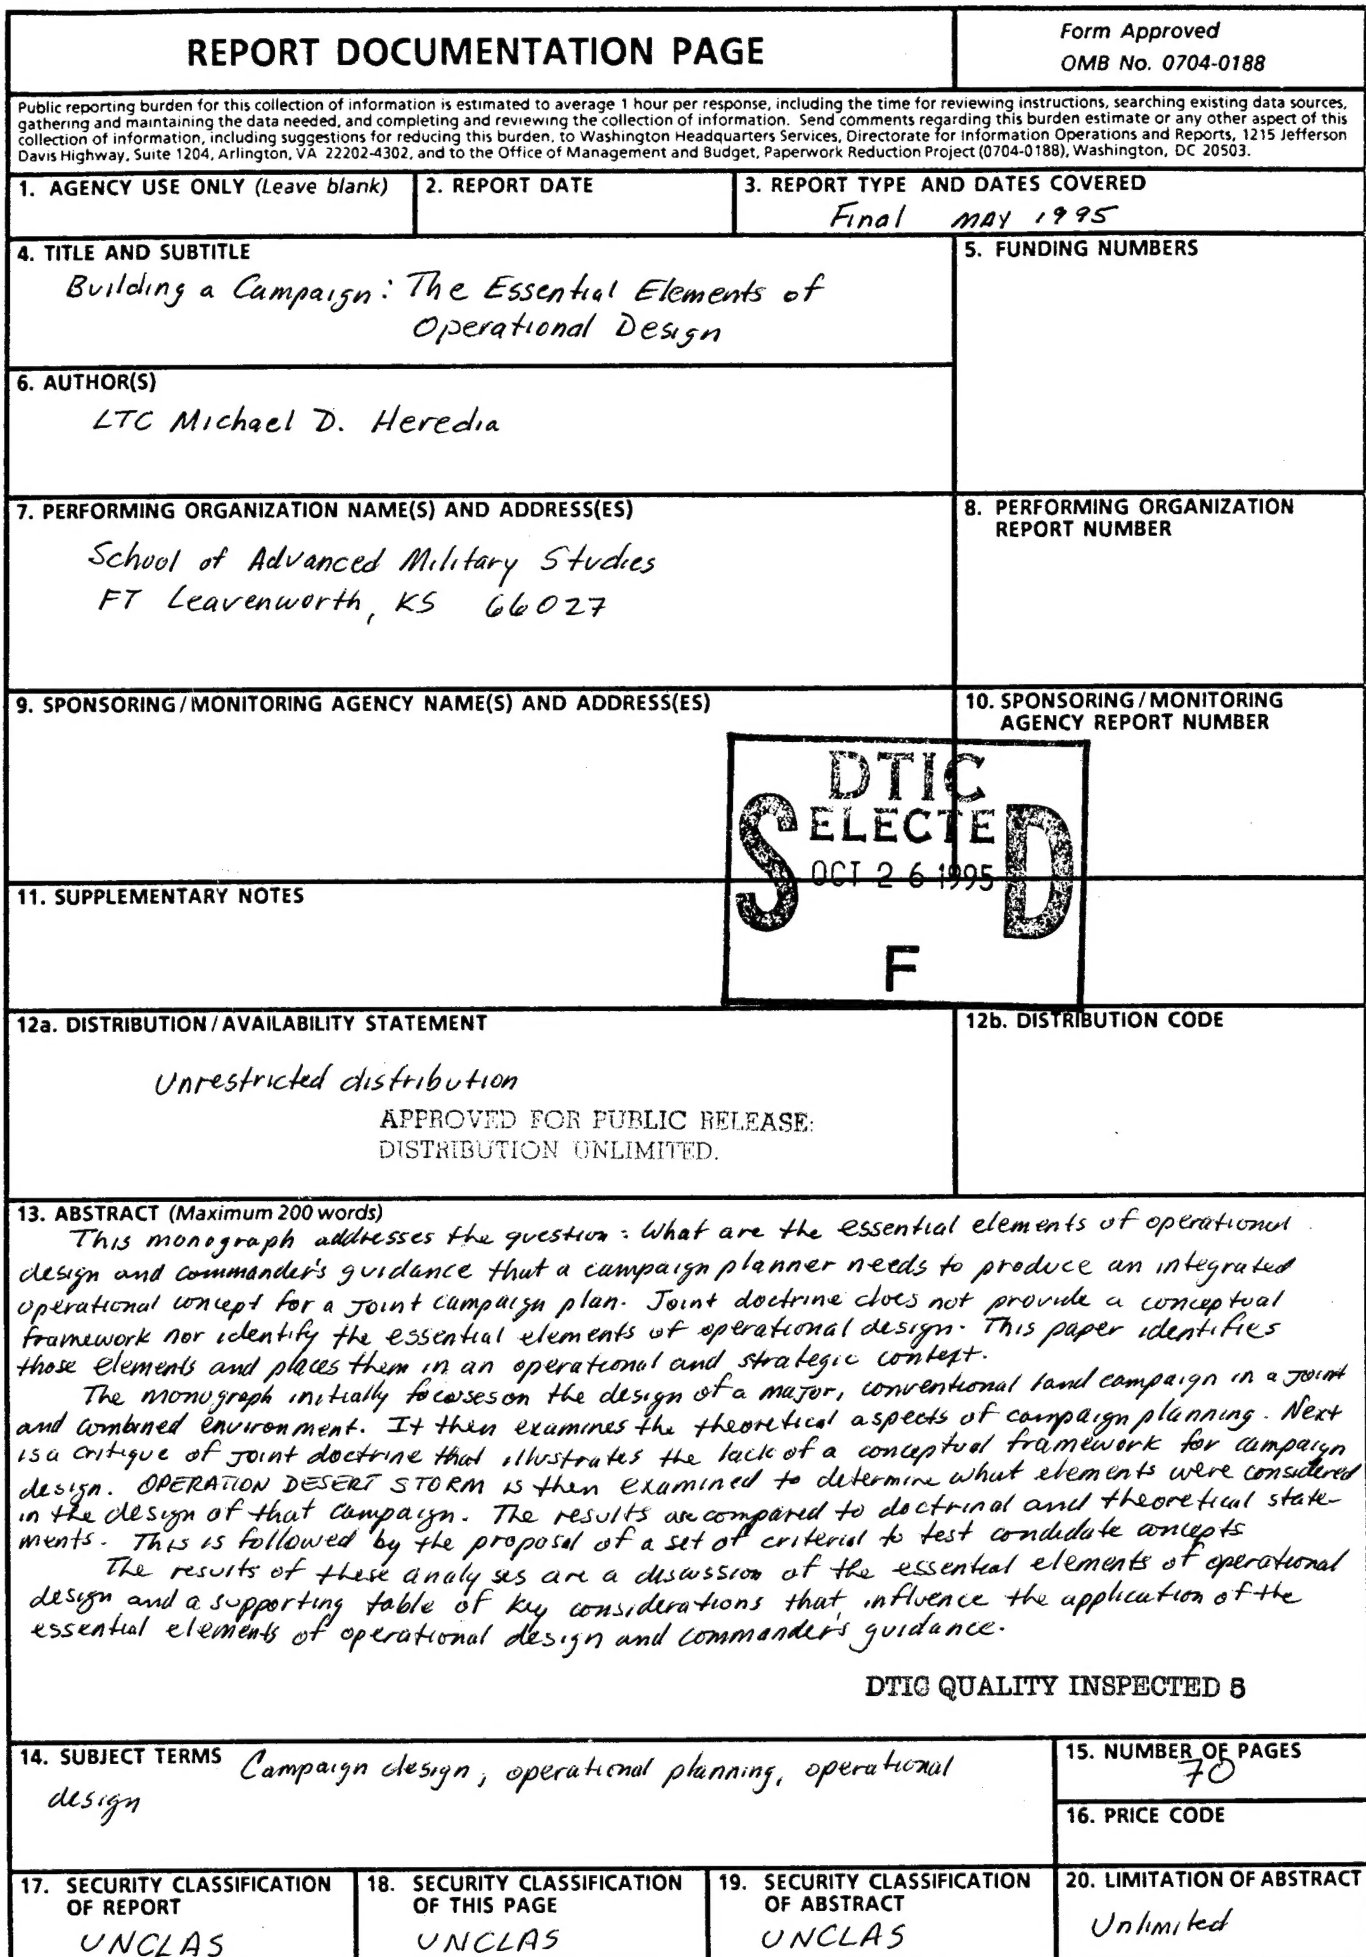 REPORT DOCUMENTATION PAGE
Form Approved
OMB No. 0704-0188
Public reporting burden for this collection of information is estimated to average 1 hour per response, including the time for reviewing instructions, searching existing data sources,
gathering and maintaining the data needed, and completing and reviewing the collection of information. Send comments regarding this burden estimate or any other aspect of this
collection of information, including suggestions for reducing this burden, to Washington Headquarters Services, Directorate for Information Operations and Reports, 1215 Jefferson
Davis Highway, Suite 1204, Arlington, VA 22202-4302, and to the Office of Management and Budget, Paperwork Reduction Project (0704-0188), Washington, DC 20503.
1. AGENCY USE ONLY (Leave blank)
2. REPORT DATE
3. REPORT TYPE AND DATES COVERED
Final MAY 1995
4. TITLE AND SUBTITLE
Building a Campaign: The Essential Elements of
Operational Design
5. FUNDING NUMBERS
6. AUTHOR(S)
LTC Michael D. Heredia
7. PERFORMING ORGANIZATION NAME(S) AND ADDRESS(ES)
School of Advanced Military Studies
FT Leavenworth, KS 66027
8. PERFORMING ORGANIZATION
REPORT NUMBER
9. SPONSORING/MONITORING AGENCY NAME(S) AND ADDRESS(ES)
10. SPONSORING/MONITORING
AGENCY REPORT NUMBER
DTIC
SELECTED
OCT 26 1995
F
11. SUPPLEMENTARY NOTES
12a. DISTRIBUTION/AVAILABILITY STATEMENT
Unrestricted distribution
APPROVED FOR PUBLIC RELEASE:
DISTRIBUTION UNLIMITED.
12b. DISTRIBUTION CODE
13. ABSTRACT (Maximum 200 words)
This monograph addresses the question: What are the essential elements of operational
design and commander's guidance that a campaign planner needs to produce an integrated
operational concept for a joint campaign plan. Joint doctrine does not provide a conceptual
framework nor identify the essential elements of operational design. This paper identifies
those elements and places them in an operational and strategic context.
The monograph initially focuses on the design of a major, conventional land campaign in a joint
and combined environment. It then examines the theoretical aspects of campaign planning. Next
is a critique of joint doctrine that illustrates the lack of a conceptual framework for campaign
design. OPERATION DESERT STORM is then examined to determine what elements were considered
in the design of that campaign. The results are compared to doctrinal and theoretical state-
ments. This is followed by the proposal of a set of criteria to test candidate concepts
The results of these analyses are a discussion of the essential elements of operational
design and a supporting table of key considerations that influence the application of the
essential elements of operational design and commander's guidance.
DTIC QUALITY INSPECTED 5
14. SUBJECT TERMS Campaign design, operational planning, operational
design
15. NUMBER OF PAGES
70
16. PRICE CODE
17. SECURITY CLASSIFICATION
OF REPORT
UNCLAS
18. SECURITY CLASSIFICATION
OF THIS PAGE
UNCLAS
19. SECURITY CLASSIFICATION
OF ABSTRACT
UNCLAS
20. LIMITATION OF ABSTRACT
Unlimited